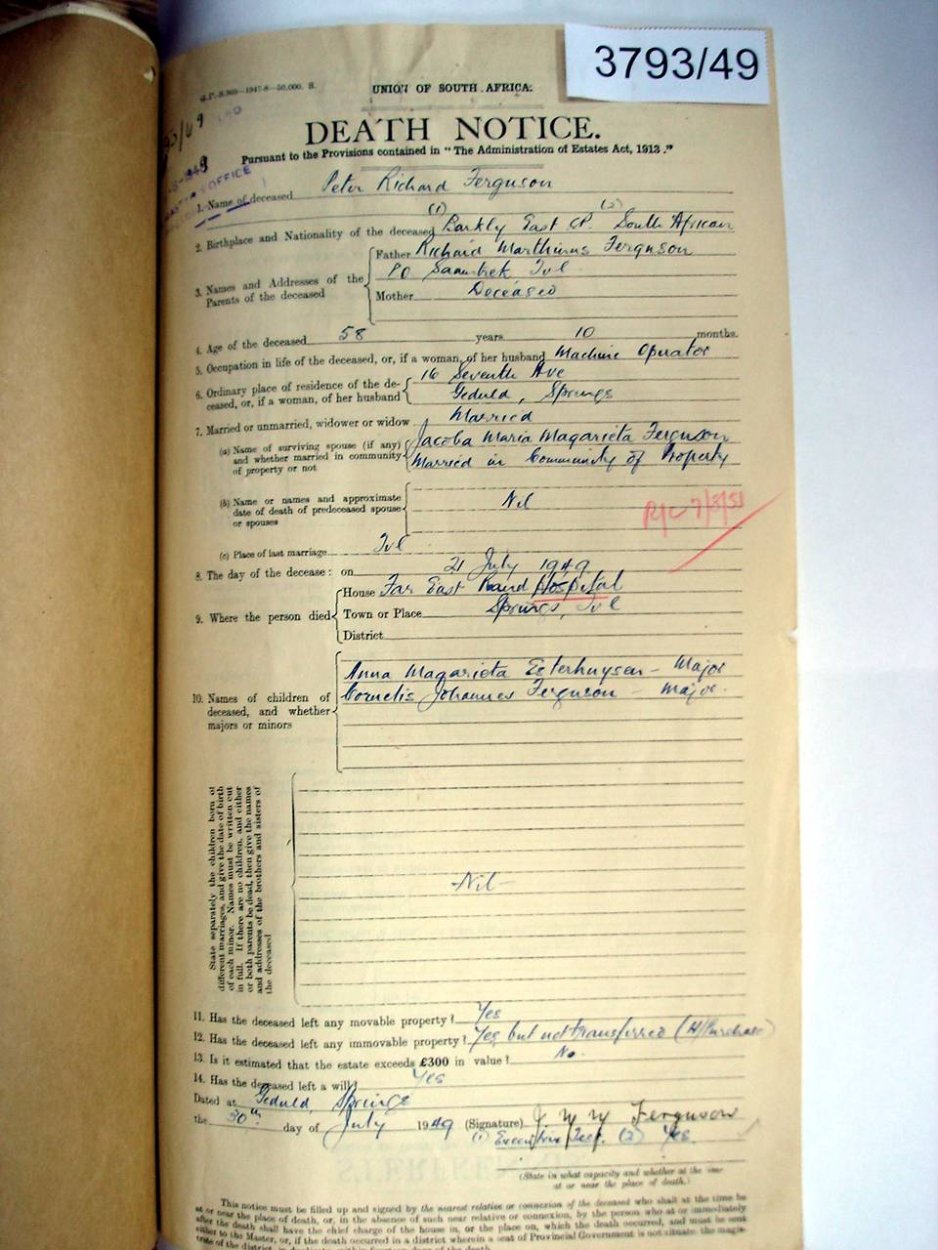 3793/49
G.P.-S.960—1947-8—50,000. S.
UNION OF SOUTH AFRICA.
DEATH NOTICE.
Pursuant to the Provisions contained in "The Administration of Estates Act, 1913."
1. Name of deceased Peter Richard Ferguson
2. Birthplace and Nationality of the deceased (1) Barkly East CP. (2) South African
3. Names and Addresses of the Parents of the deceased
Father Richard Marthinus Ferguson
PO Saambek Tvl
Mother Deceased
4. Age of the deceased 58 years 10 months.
5. Occupation in life of the deceased, or, if a woman, of her husband Machine Operator
6. Ordinary place of residence of the de-
ceased, or, if a woman, of her husband
16 Seventh Ave
Geduld, Springs
7. Married or unmarried, widower or widow Married
(a) Name of surviving spouse (if any)
and whether married in community
of property or not
Jacoba Maria Magarieta Ferguson
Married in Community of Property
(b) Name or names and approximate
date of death of predeceased spouse
or spouses
Nil
7/8/51
(c) Place of last marriage Tvl
8. The day of the decease: on 21 July 1949
9. Where the person died
House Far East Rand Hospital
Town or Place Springs, Tvl
District
10. Names of children of
deceased, and whether
majors or minors
Anna Magarieta Esterhuysen - Major
Cornelis Johannes Ferguson - Major.
State separately the children born of
different marriages, and give the date of birth
of each minor. Names must be written out
in full. If there are no children, and either
or both parents be dead, then give the names
and addresses of the brothers and sisters of
the deceased
-Nil-
11. Has the deceased left any movable property? Yes
12. Has the deceased left any immovable property? Yes but not transferred (H/Purchase)
13. Is it estimated that the estate exceeds £300 in value? No.
14. Has the deceased left a will? Yes
Dated at Geduld, Springs
the 30th day of July 1949 (Signature) J M M Ferguson
(1) Executrix Test. (2) Yes.
(State in what capacity and whether at the time
at or near the place of death.)
This notice must be filled up and signed by the nearest relative or connection of the deceased who shall at the time be
at or near the place of death, or, in the absence of such near relative or connexion, by the person who at or immediately
after the death shall have the chief charge of the house in, or the place on, which the death occurred, and must be sent
either to the Master, or, if the death occurred in a district wherein a seat of Provincial Government is not situate the magis-
trate of the district,